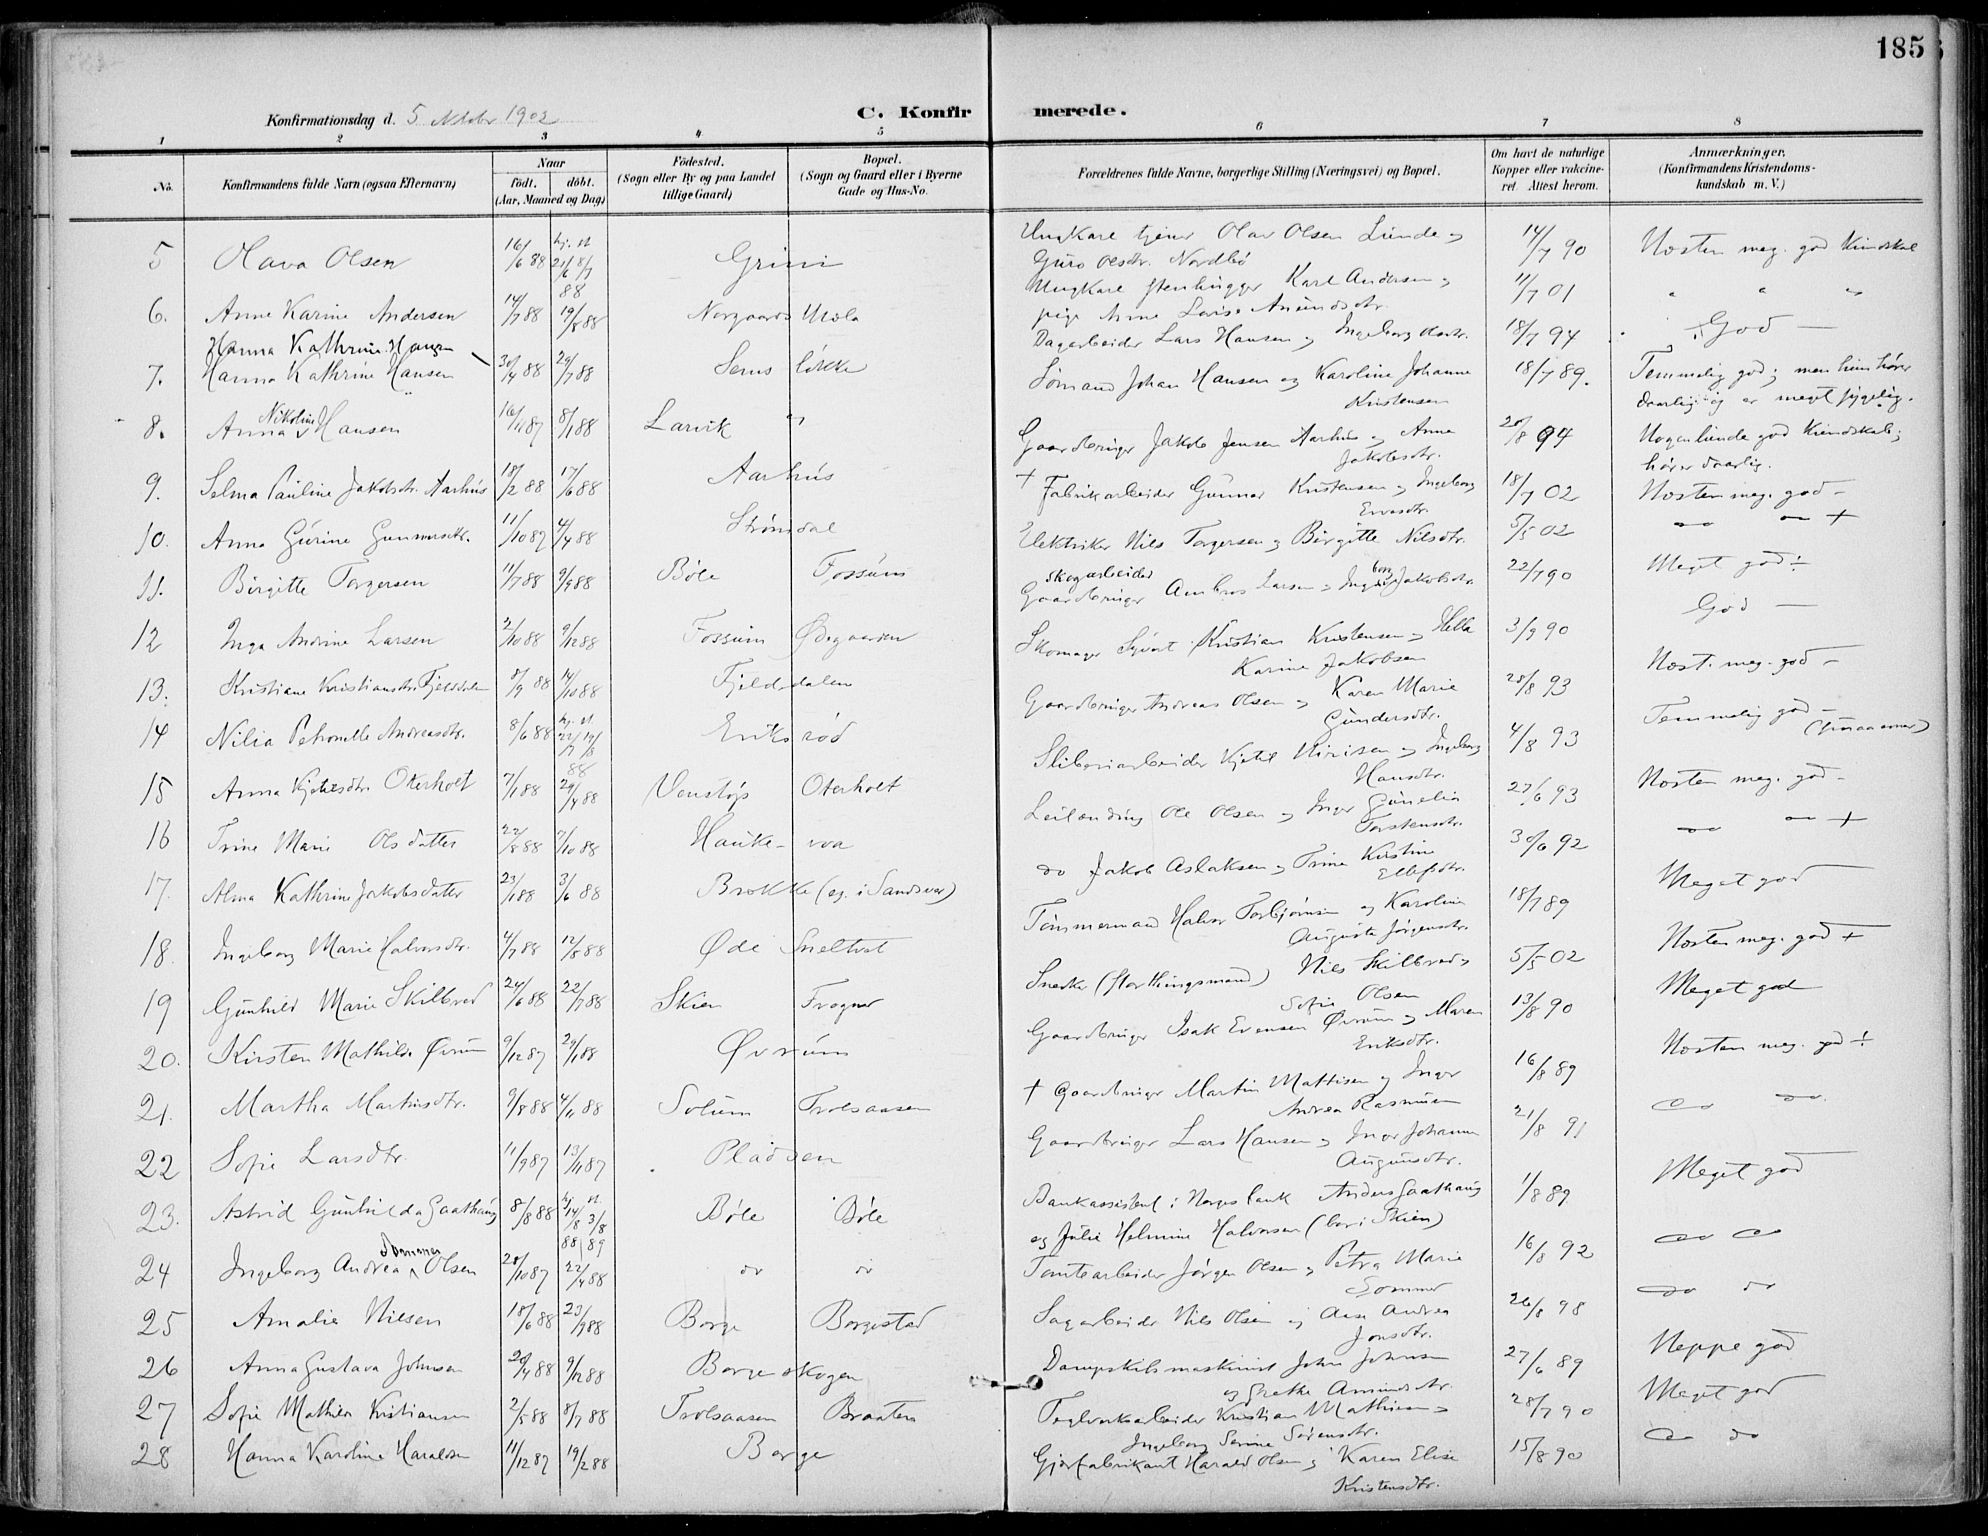 185
Konfirmationsdag d. 5 Oktober 1902
C. Konfirmerede.
1 2 3 4 5 6 7 8
No.
Konfirmandens fulde Navn (ogsaa Efternavn)
Naar
födt. döbt.
(Aar, Maaned og Dag)
Födested.
(Sogn eller By og paa Landet
tillige Gaard)
Bopæl.
(Sogn og Gaard eller i Byerne
Gade og Hus-No.
Forældrenes fulde Navne, borgerlige Stilling (Næringsvei) og Bopæl.
Om havt de naturlige
Kopper eller vakcine-
ret Attest herom.
Anmærkninger,
(Konfirmandens Kristendoms-
kundskab m. V.)
5 Olava Olsen 16/6 88 hj. 21/6 st 8/7 88 Grini Ungkarl tjener Olav Olsen Lunde og Guro Olsdtr. Nordbö 14/7 90 Næsten meg. god Kundskab
6. Anne Karine Andersen 14/7 88 19/8 88 Norgaards Mæla Ungkarl stenhugger Karl Andersen og pige Anne Lovise Amundsdtr. 11/7 01 " " "
7. Hanna Kathrine Hansen 30/4 88 29/7 88 Sems lökke Dagarbeider Lars Hansen og Ingeborg Olsdtr. 18/7 94 God —
8. Anna Nikoline Hansen 16/11 87 8/1 88 Larvik " Sömand Johan Hansen og Karoline Johanne Kristensen 18/7 89. Temmelig god; men hun hører daarlig og er meget sygelig.
9. Selma Pauline Jakobsdtr. Aarhus 18/2 88 17/6 88 Aarhus Gaardbruger Jakob Jensen Aarhus og Anne Jakobsdtr. 20/8 94 Nogenlunde god Kundskab; hører daarlig.
10. Anna Gurine Gunnarsdtr. 11/10 87 4/4 88 Strömdal + Fabrikarbeider Gunnar Kristensen og Ingeborg 18/7 02 Næsten meg. god –
11. Birgitte Torgersen 11/7 88 9/9 88 Böle Fossum Elektriker Nils Torgersen og Birgitte Nilsdtr. 5/5 02 do do +
12 Inga Andrine Larsen 2/10 88 9/12 88 Fossum Ødegaarden Skogarbeider Gaardbruger Ambros Larsen og Ingeborg Jakobsdtr. 22/7 90 Meget god ÷
13. Kristiane Kristiansdtr. Fjelddalen 8/9 88 14/10 88 Fjelddalen Skomager Syvert Kristian Kristensen og Helle Karine Jakobsen 3/9 90 God —
14 Nilia Petronelle Andreasdtr. 8/6 88 hj. 22/7 st 19/8 88 Eriksröd Gaardbruger Andreas Olsen og Karen Marie Gundersdtr. 28/8 93 Næst. meg. god –
15 Anna Kjetilsdtr. Oterholt 7/1 88 29/4 88 Venstöp Oterholt Sliberiarbeider Kjetil Nirisen og Ingeborg Hansdtr. 4/8 93 Temmelig god –
16 Trine Marie Olsdatter 22/8 88 7/10 88 Haukeroa Leilending Ole Olsen og Inger Gunelia Torstensdtr. 27/6 93 Næsten meg. god –
17. Alma Kathrine Jakobsdatter 23/1 88 3/6 88 Brekke (eg. i Sandsver) do Jakob Aslaksen og Trine Kirstine Ellefsdtr. 30/6 92 do do +
18. Ingeborg Marie Halvorsdtr. 4/7 88 12/8 88 Øde Sneltvet Tömmermand Halvor Torbjörnsen og Karoline Auguste Jörgensdtr. 18/7 89 Meget god
19 Gunhild Marie Skilbred 24/6 88 22/7 88 Skien Frogner Snedker (storthingsmand) Nils Skilbred og Sofie Olsen 5/5 02 Næsten meg. god +
20. Kirsten Mathilde Øvrum 9/12 87 29/1 88 Øvrum Gaardbruger Isak Evensen Øvrum og Maren Eriksdtr. 13/8 90 Meget god
21. Martha Martinsdtr. 9/8 88 4/11 88 Solum Trolsaasen + Gaardbruger Martin Mattisen og Inger Andrea Rasmusen 16/8 89 Næsten meg. god ÷
22 Sofie Larsdtr. 11/9 87 13/11 87 Pladsen Gaardbruger Lars Hansen og Inger Johanne 21/8 91 do do
23. Astrid Gunhilda Gaathaug 8/8 88 hj. 14/8 88 st 3/8 89 Böle Böle Bankassistent i Norges bank Anders Gaathaug og Julie Helmine Halvorsen (bor i Skien) 1/8 89 Meget god
24 Ingeborg Andrea Sommer Olsen 28/10 87 22/4 88 do do Tomtearbeider Jörgen Olsen og Petra Marie Sommer 16/8 92 do do
25 Amalie Nilsen 18/6 88 23/9 88 Borge Borgestad Sagarbeider Nils Olsen og Aase Andrea Jonsdtr. 26/8 98 do do
26 Anna Gustava Johnsen 20/4 88 9/12 88 Borgeskogen Dampskibsmaskinist John Johnsen og Grethe Amundsdtr. 27/6 89 Neppe god
27 Sofie Mathilde Kristiansen 2/5 88 8/7 88 Trolsaasen Braaten Teglverksarbeider Kristian Mathisen og Ingeborg Serine Sörensdtr. 28/7 90 Meget god
28 Hanna Karoline Haraldsen 11/12 87 19/2 88 Borge Gjærfabrikant Harald Olsen og Karen Elise Kristensdtr. 15/8 90 do do